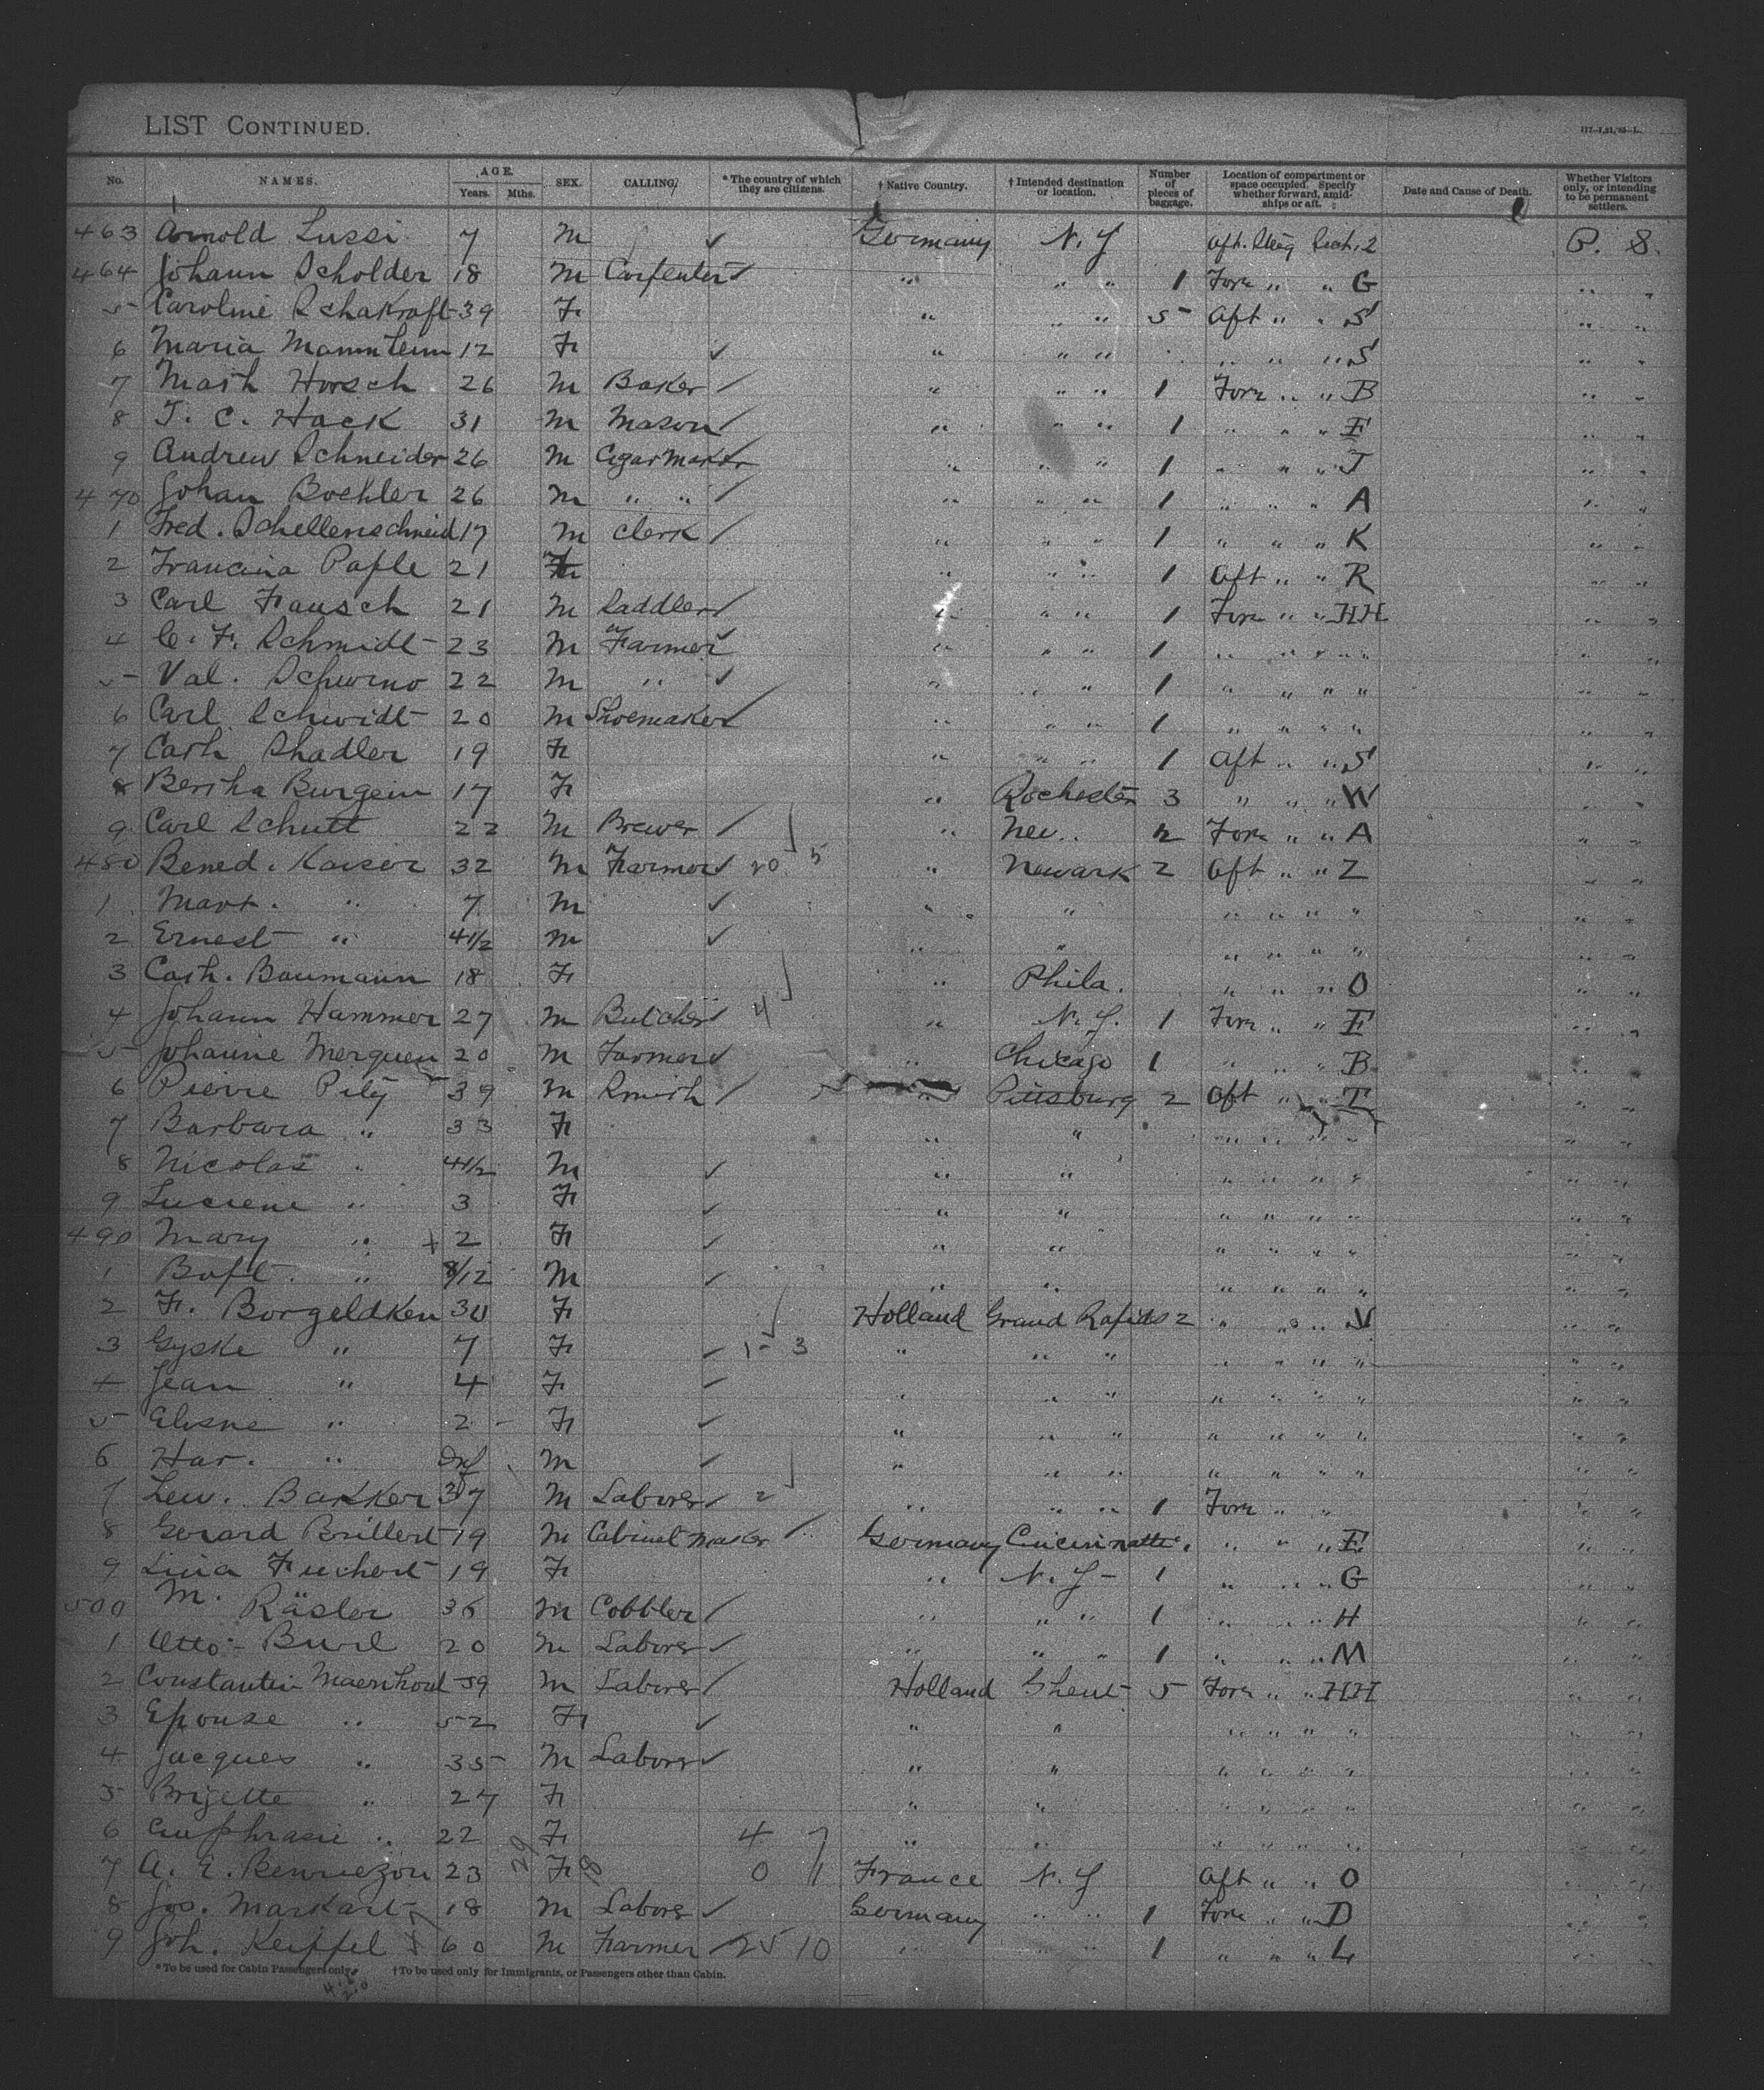 LIST CONTINUED.
No. NAMES. AGE. Years. Mths. SEX. CALLING * The country of which they are citizens. † Native Country. † Intended destination or location. Number of pieces of baggage. Location of compartment or space occupied. Specify whether forward, amidships or aft. Date and Cause of Death. Whether Visitors only, or intending to be permanent settlers.
463 Arnold Lussi 7 M ✓ Germany N. Y Aft. Sect. 2 P. S.
464 Johann Scholder 18 M Carpenter ✓ " " " 1 Forw " " G " "
5 Caroline Schakraft 39 F " " " 5 Aft " " S " "
6 Maria 12 F ✓ " " " " " " S " "
7 Math Horsch 26 M Baker ✓ " " " 1 Forw " " B " "
8 J. C. Hack 31 M Mason ✓ " " " 1 " " " E " "
9 Andrew Schneider 26 M Cigar Maker " " " 1 " " " J " "
470 Johan Boehler 26 M " " ✓ " " " 1 " " " A " "
1 Fred. Schellenschneid 17 M Clerk ✓ " " " 1 " " " K " "
2 Francina 21 F " " " 1 Aft " " R " "
3 Carl Frausch 21 M Saddler ✓ " " " 1 Forw " " HH " "
4 C. F. Schmidt 23 M Farmer ✓ " " " 1 " " " " " "
5 Val. 22 M " ✓ " " " 1 " " " " " "
6 Carl Schmidt 20 M Shoemaker ✓ " " " 1 " " " " " "
7 Cath Shadler 19 F " " " 1 Aft " " S " "
8 Bertha Burgein 17 F " Rochester 3 " " " W " "
9 Carl Schutt 22 M Brewer ✓ " New " 2 Forw " " A " "
480 Bened. Kaiser 32 M Farmer ✓ 20 5 " Newark 2 Aft " " Z " "
1 Mart. " 7 M ✓ " " " " " " " "
2 Ernest " 4 1/2 M ✓ " " " " " " " "
3 Cath. Baumann 18 F " Phila. " " " O " "
4 Johann Hammer 27 M Butcher ✓ 4 " N. Y. 1 Forw " " E " "
5 Johanne Merquen 20 M Farmer ✓ " Chicago 1 " " " B " "
6 Pierre Pily 39 M Smith ✓ " Pittsburg 2 Aft " " T " "
7 Barbara " 33 F " " " " " " " "
8 Nicolas " 4 1/2 M ✓ " " " " " " " "
9 Luciene " 3 F ✓ " " " " " " " "
490 Mary " + 2 F ✓ " " " " " " " "
1 Bapt. " 8/12 M ✓ " " " " " " " "
2 F. Borgeldken 30 F Holland Grand Rapids 2 " " " V " "
3 Gyske " 7 F ✓ 1 - 3 " " " " " " " " "
4 Jean " 4 F ✓ " " " " " " " " "
5 " 2 F ✓ " " " " " " " " "
6 Har. " Inf M ✓ " " " " " " " " "
7 Lew. Bakker 37 M Laborer ✓ 2 " " " 1 Forw " " " "
8 Gerard Brillert 19 M Cabinet maker ✓ Germany Cincinnatti " " " E " "
9 Lina Fuchert 19 F " N. Y - 1 " " " G " "
500 M. Räsler 36 M Cobbler ✓ " " " 1 " " " H " "
1 Otto 20 M Laborer ✓ " " " 1 " " " M " "
2 Constantin Maernhout 59 M Laborer ✓ Holland Ghent 5 Forw " " HH " "
3 Epouse " 52 F ✓ " " " " " " " "
4 Jacques " 35 M Laborer ✓ " " " " " " " "
5 Brigette " 27 F " " " " " " " "
6 Euphrasie " 22 F 4 7 " " " " " " " "
7 A. E. 23 29 F 18 0 1 France N. Y Aft " " O " "
8 Jos. Markart 18 M Laborer ✓ Germany " " 1 Forw " " D " "
9 Joh. Keippel 60 M Farmer ✓ 25 10 " " " 1 " " " L " "
* To be used for Cabin Passengers only. † To be used only for Immigrants, or Passengers other than Cabin.